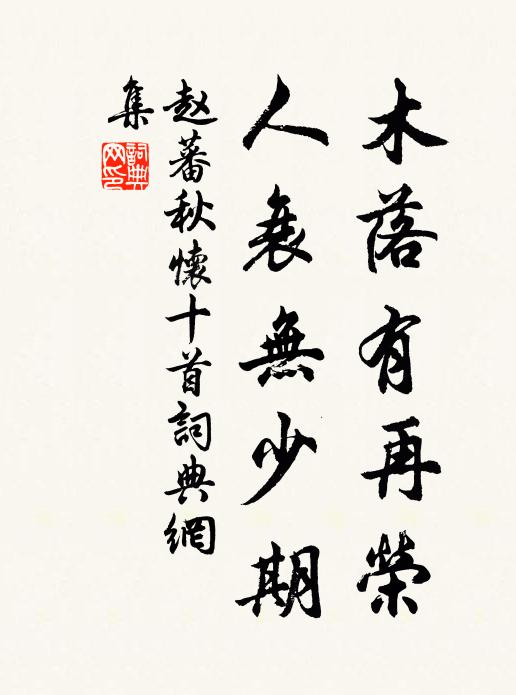 木落有再榮
人衰無少期
赵蕃秋懷十首詞典網
集
詞典网印